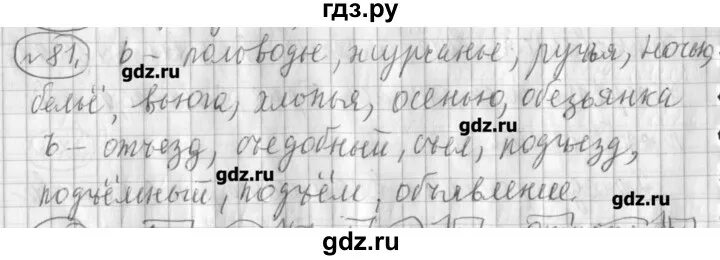 гдз.ру
№81. ь – половодье, журчанье, ручья, ночью,
бельё, вьюга, хлопья, осенью, обезьянка
gdz.ru
ъ – отъезд, съедобный, съел, подъезд,
gdz.ru
подъёмный, подъём, объявление.
gdz.ru
gdz.ru